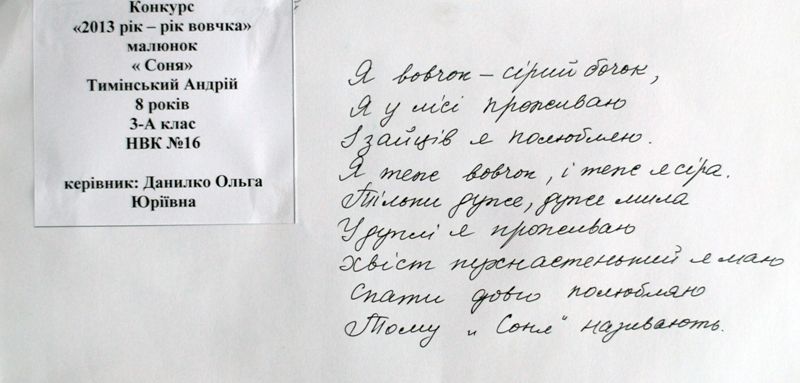 Конкурс
«2013 рік – рік вовчка»
малюнок
« Соня»
Тимінський Андрій
8 років
3-А клас
НВК №16
керівник: Данилко Ольга
Юріївна
Я вовчок – сірий бочок,
Я у лісі проживаю
І зайців я полюбляю.
Я теж вовчок, і теж я сіра.
Тільки дуже, дуже мила
У дуплі я проживаю
Хвіст пухнастенький я маю
Спати довго полюбляю
Тому „Соня" називають.